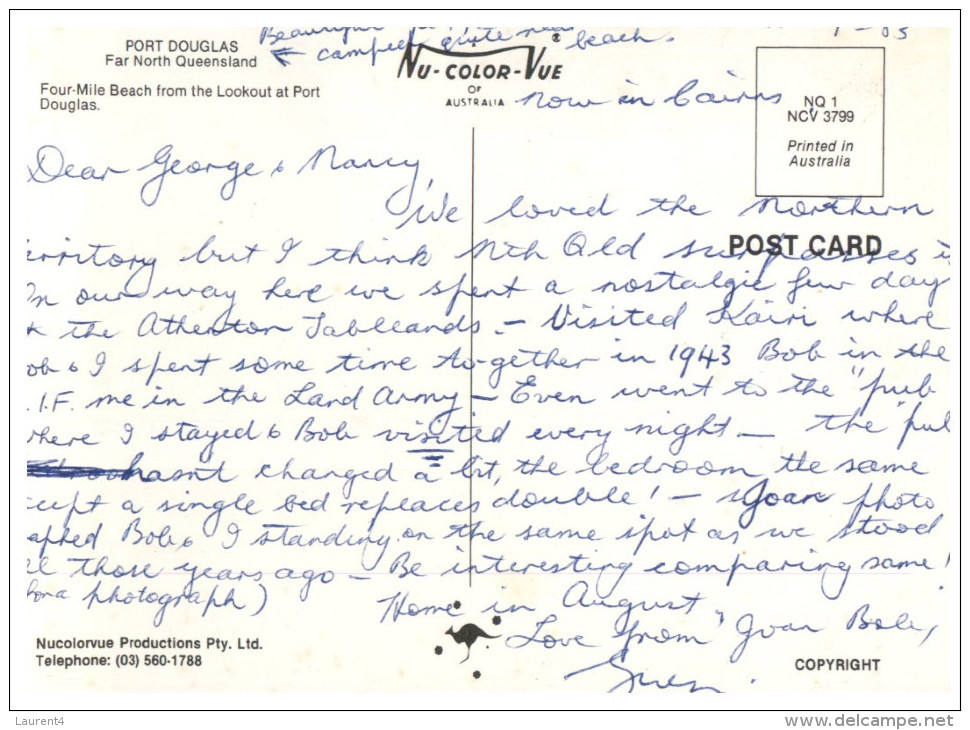 PORT DOUGLAS
Far North Queensland
Four-Mile Beach from the Lookout at Port
Douglas.
Beautiful
← camped quite near beach.
- 85
NU-COLOR-VUE ®
OF
AUSTRALIA
now in Cairns
NQ 1
NCV 3799
Printed in
Australia
POST CARD
Dear George & Nancy,
We loved the Northern
erritory but I think Nth Qld surpasses i
n our way here we spent a nostalgic few day
the Atherton Tablelands. – Visited Kairi where
ob & I spent some time together in 1943 Bob in the
.I.F. me in the Land Army – Even went to the "pub
here I stayed & Bob visited every night – The "pu
hasnt changed a bit, the bedroom the same
cept a single bed replaces double! – Joan photo
aphed Bob & I standing on the same spot as we stood
ll those years ago – Be interesting comparing same!
for a photograph)
Home in August,
Love from Joan Bob,
Gwen.
Nucolorvue Productions Pty. Ltd.
Telephone: (03) 560-1788
COPYRIGHT
Laurent4
www.delcampe.net